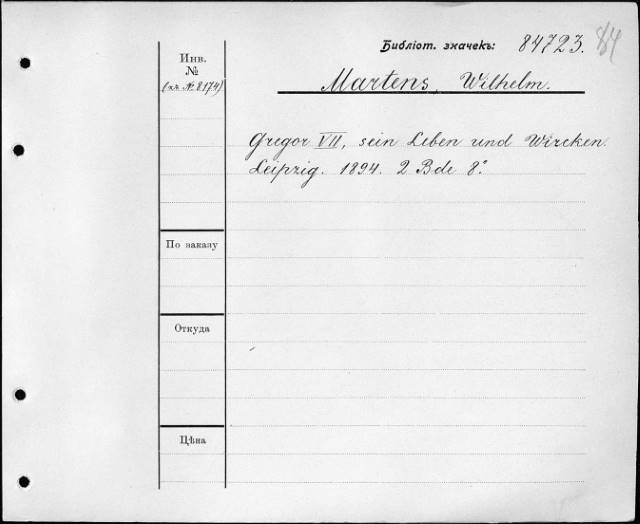 Библіот. значекъ: 84723.
Инв.
№
Martens, Wilhelm.
Gregor VII, sein Leben und Wircken.
Leipzig. 1894. 2 Bde 8°
По заказу
Откуда
Цѣна